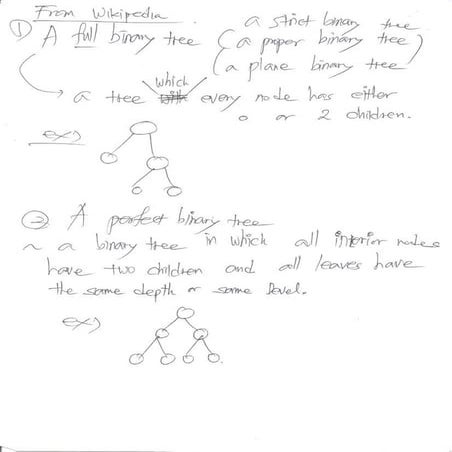 From Wikipedia
① A full binary tree (a strict binary tree
a proper binary tree
a plane binary tree)
a tree which every node has either
0 or 2 children.
ex)
② A perfect binary tree
~ a binary tree in which all interior nodes
have two children and all leaves have
the same depth or same level.
ex)